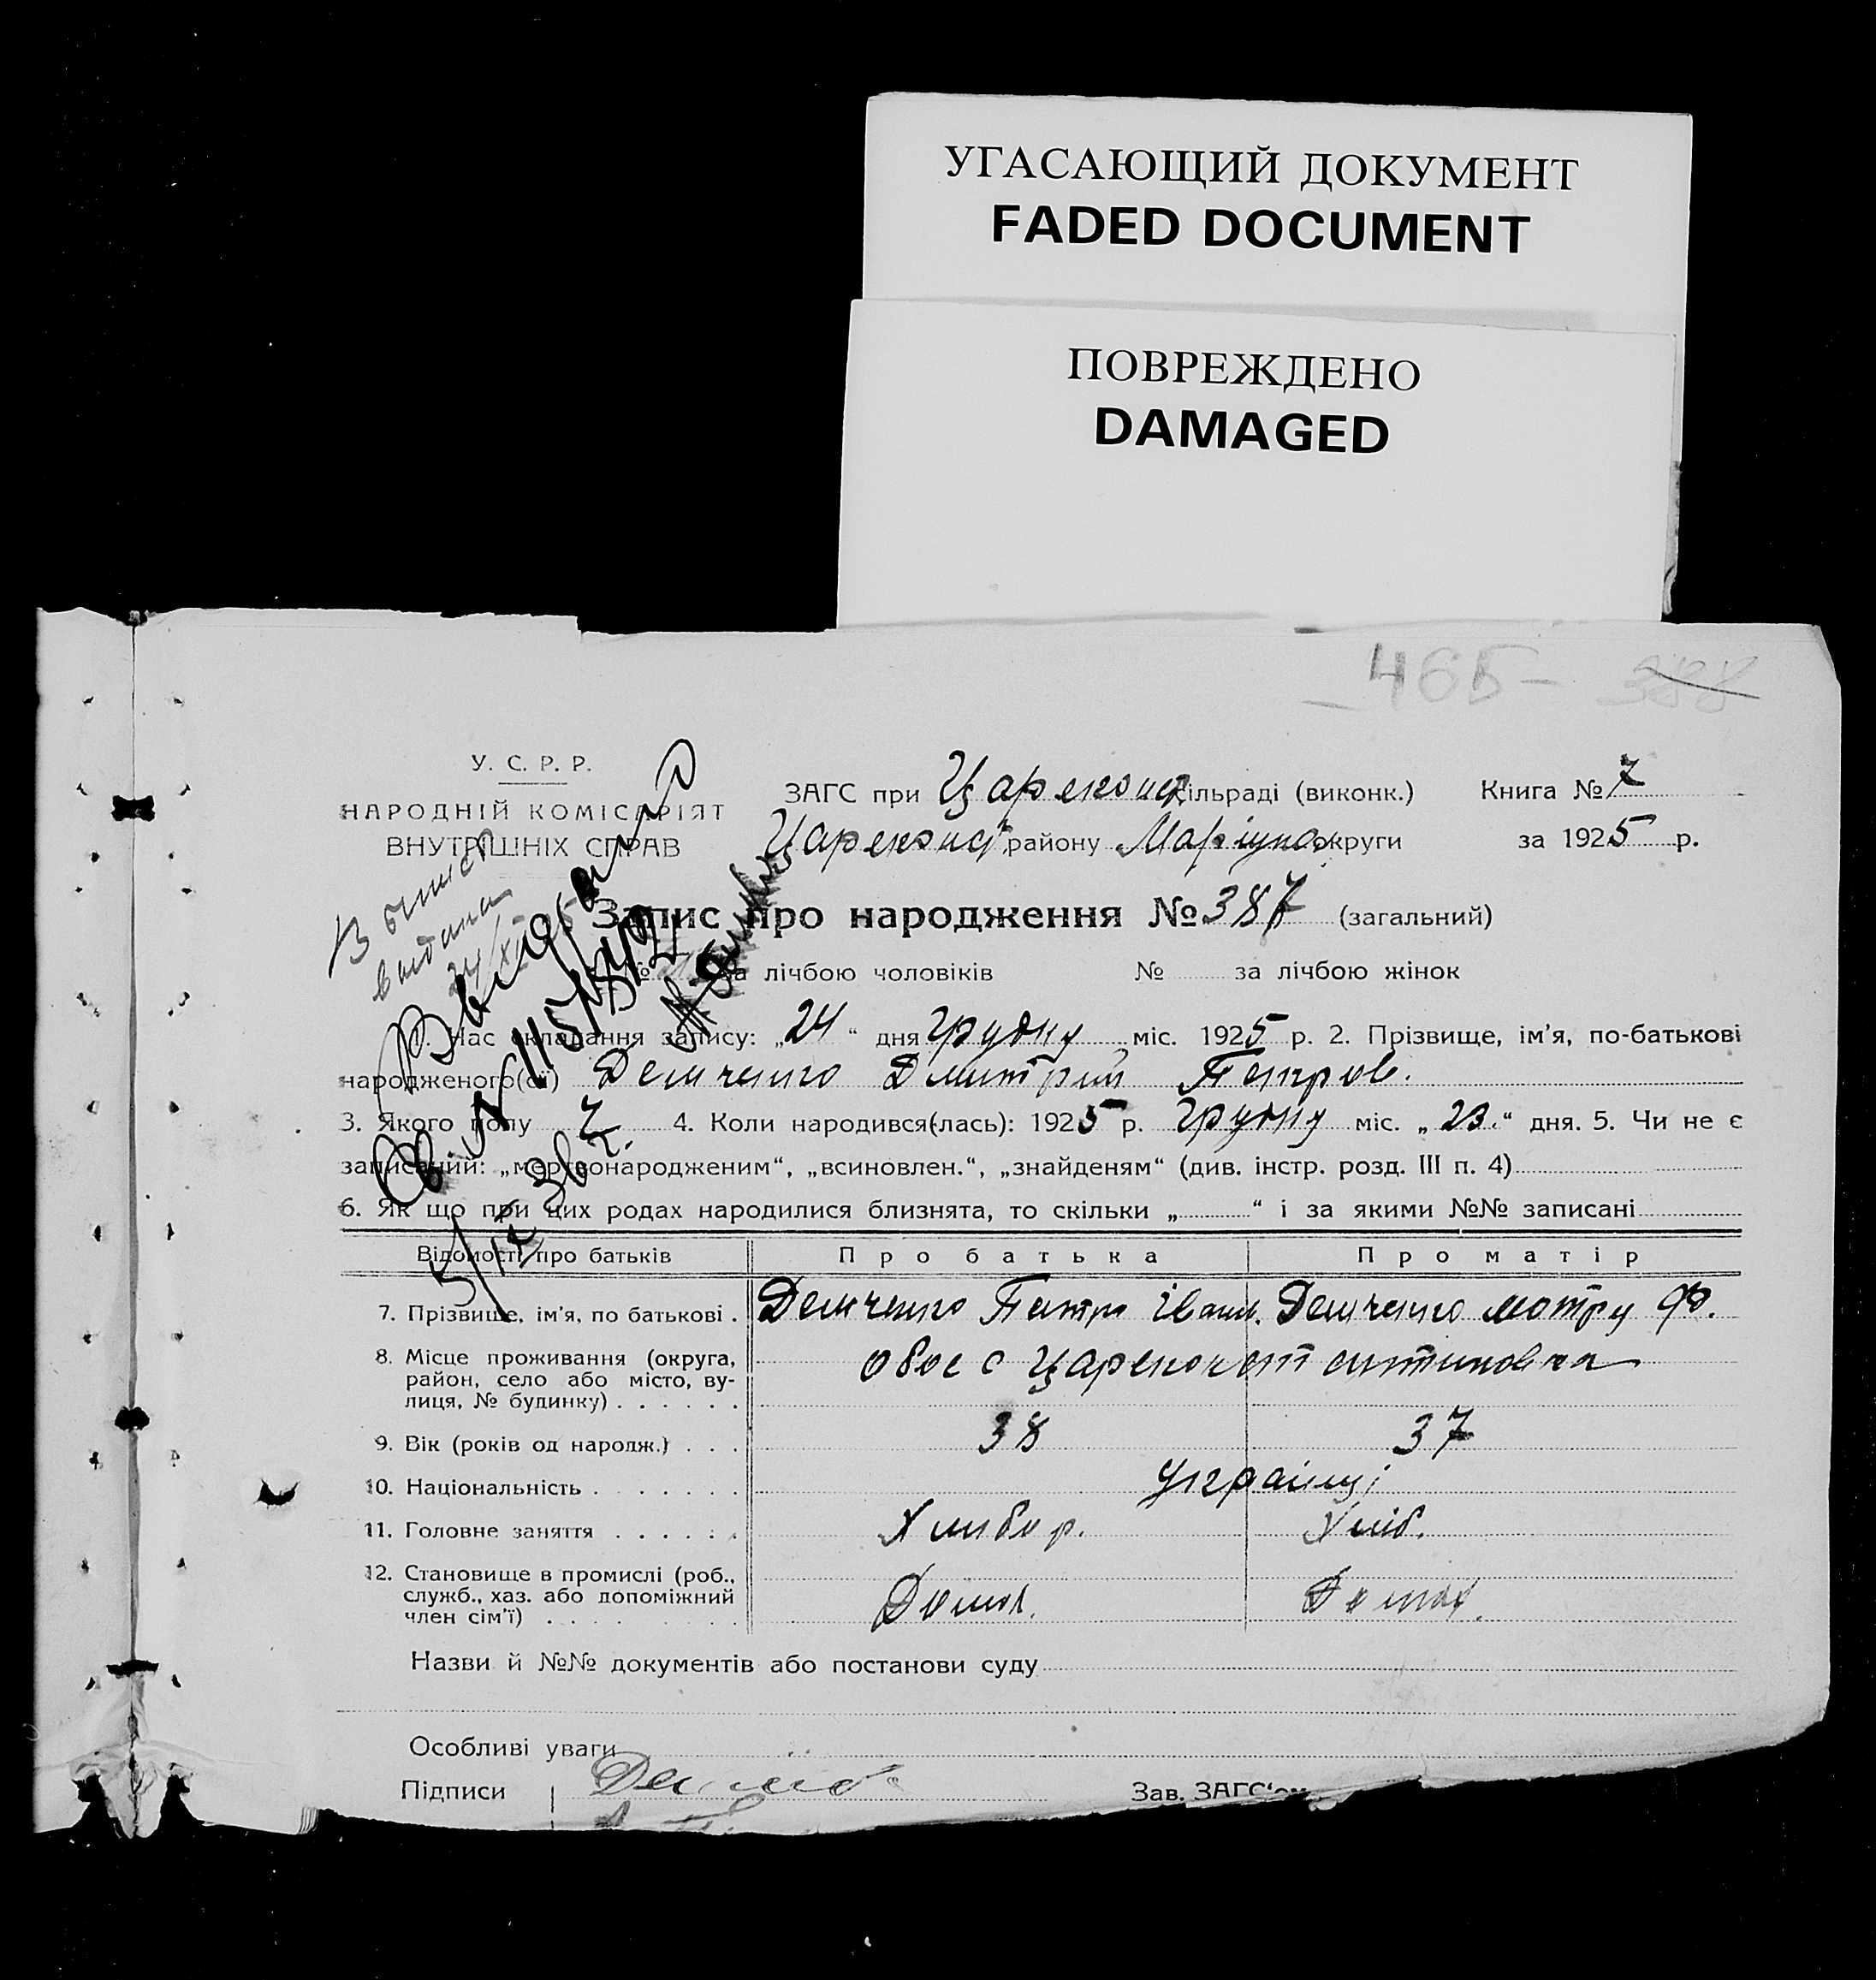 УГАСАЮЩИЙ ДОКУМЕНТ
FADED DOCUMENT
ПОВРЕЖДЕНО
DAMAGED
465-
У. С. Р. Р.
НАРОДНІЙ КОМІСАРІЯТ
ВНУТРІШНІХ СПРАВ
ЗАГС при Царекон сільраді (виконк.) Книга № 7
Царекон району Маріупол округи за 1925 р.
Запис про народження № 387 (загальний)
№ за лічбою чоловіків № за лічбою жінок
1. Час складання запису: „24“ дня Грудня міс. 1925 р. 2. Прізвище, ім'я, по-батькові
народженого(ої) Демченко Дмитрий Петров.
3. Якого полу Ч. 4. Коли народився(лась): 1925 р. Грудня міс. „23.“ дня. 5. Чи не є
записаний: „мертвонародженим“, „всиновлен.“, „знайденям“ (див. інстр. розд. III п. 4)
6. Як що при цих родах народилися близнята, то скільки „ “ і за якими №№ записані
Відомості про батьків Про батька Про матір
7. Прізвище, ім'я, по батькові . Демченко Петро Іван. Демченко Мотря Ф.
8. Місце проживання (округа,
район, село або місто, ву-
лиця, № будинку) . . . . . .
обое с Царекон
9. Вік (років од народж.) . . . 38 37
10. Національність . . . . . . . Українці
11. Головне заняття . . . . . . Хлибор. Хліб.
12. Становище в промислі (роб.,
служб., хаз. або допоміжний
член сім'ї) . . . . . . .
Домох. Домох.
Назви й №№ документів або постанови суду
Особливі уваги
Підписи Зав. ЗАГС'ом
Выпись
выдана
Выдано